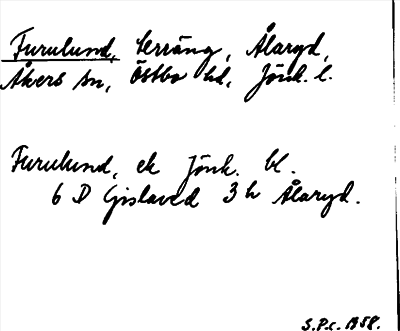 Furulund, terräng, Ålaryd,
Åkers sn, Östbo hd, Jönk. l.
Furulund, ek Jönk. bl.
6 D Gislaved 3 h Ålaryd.
S.P.c. 1958.